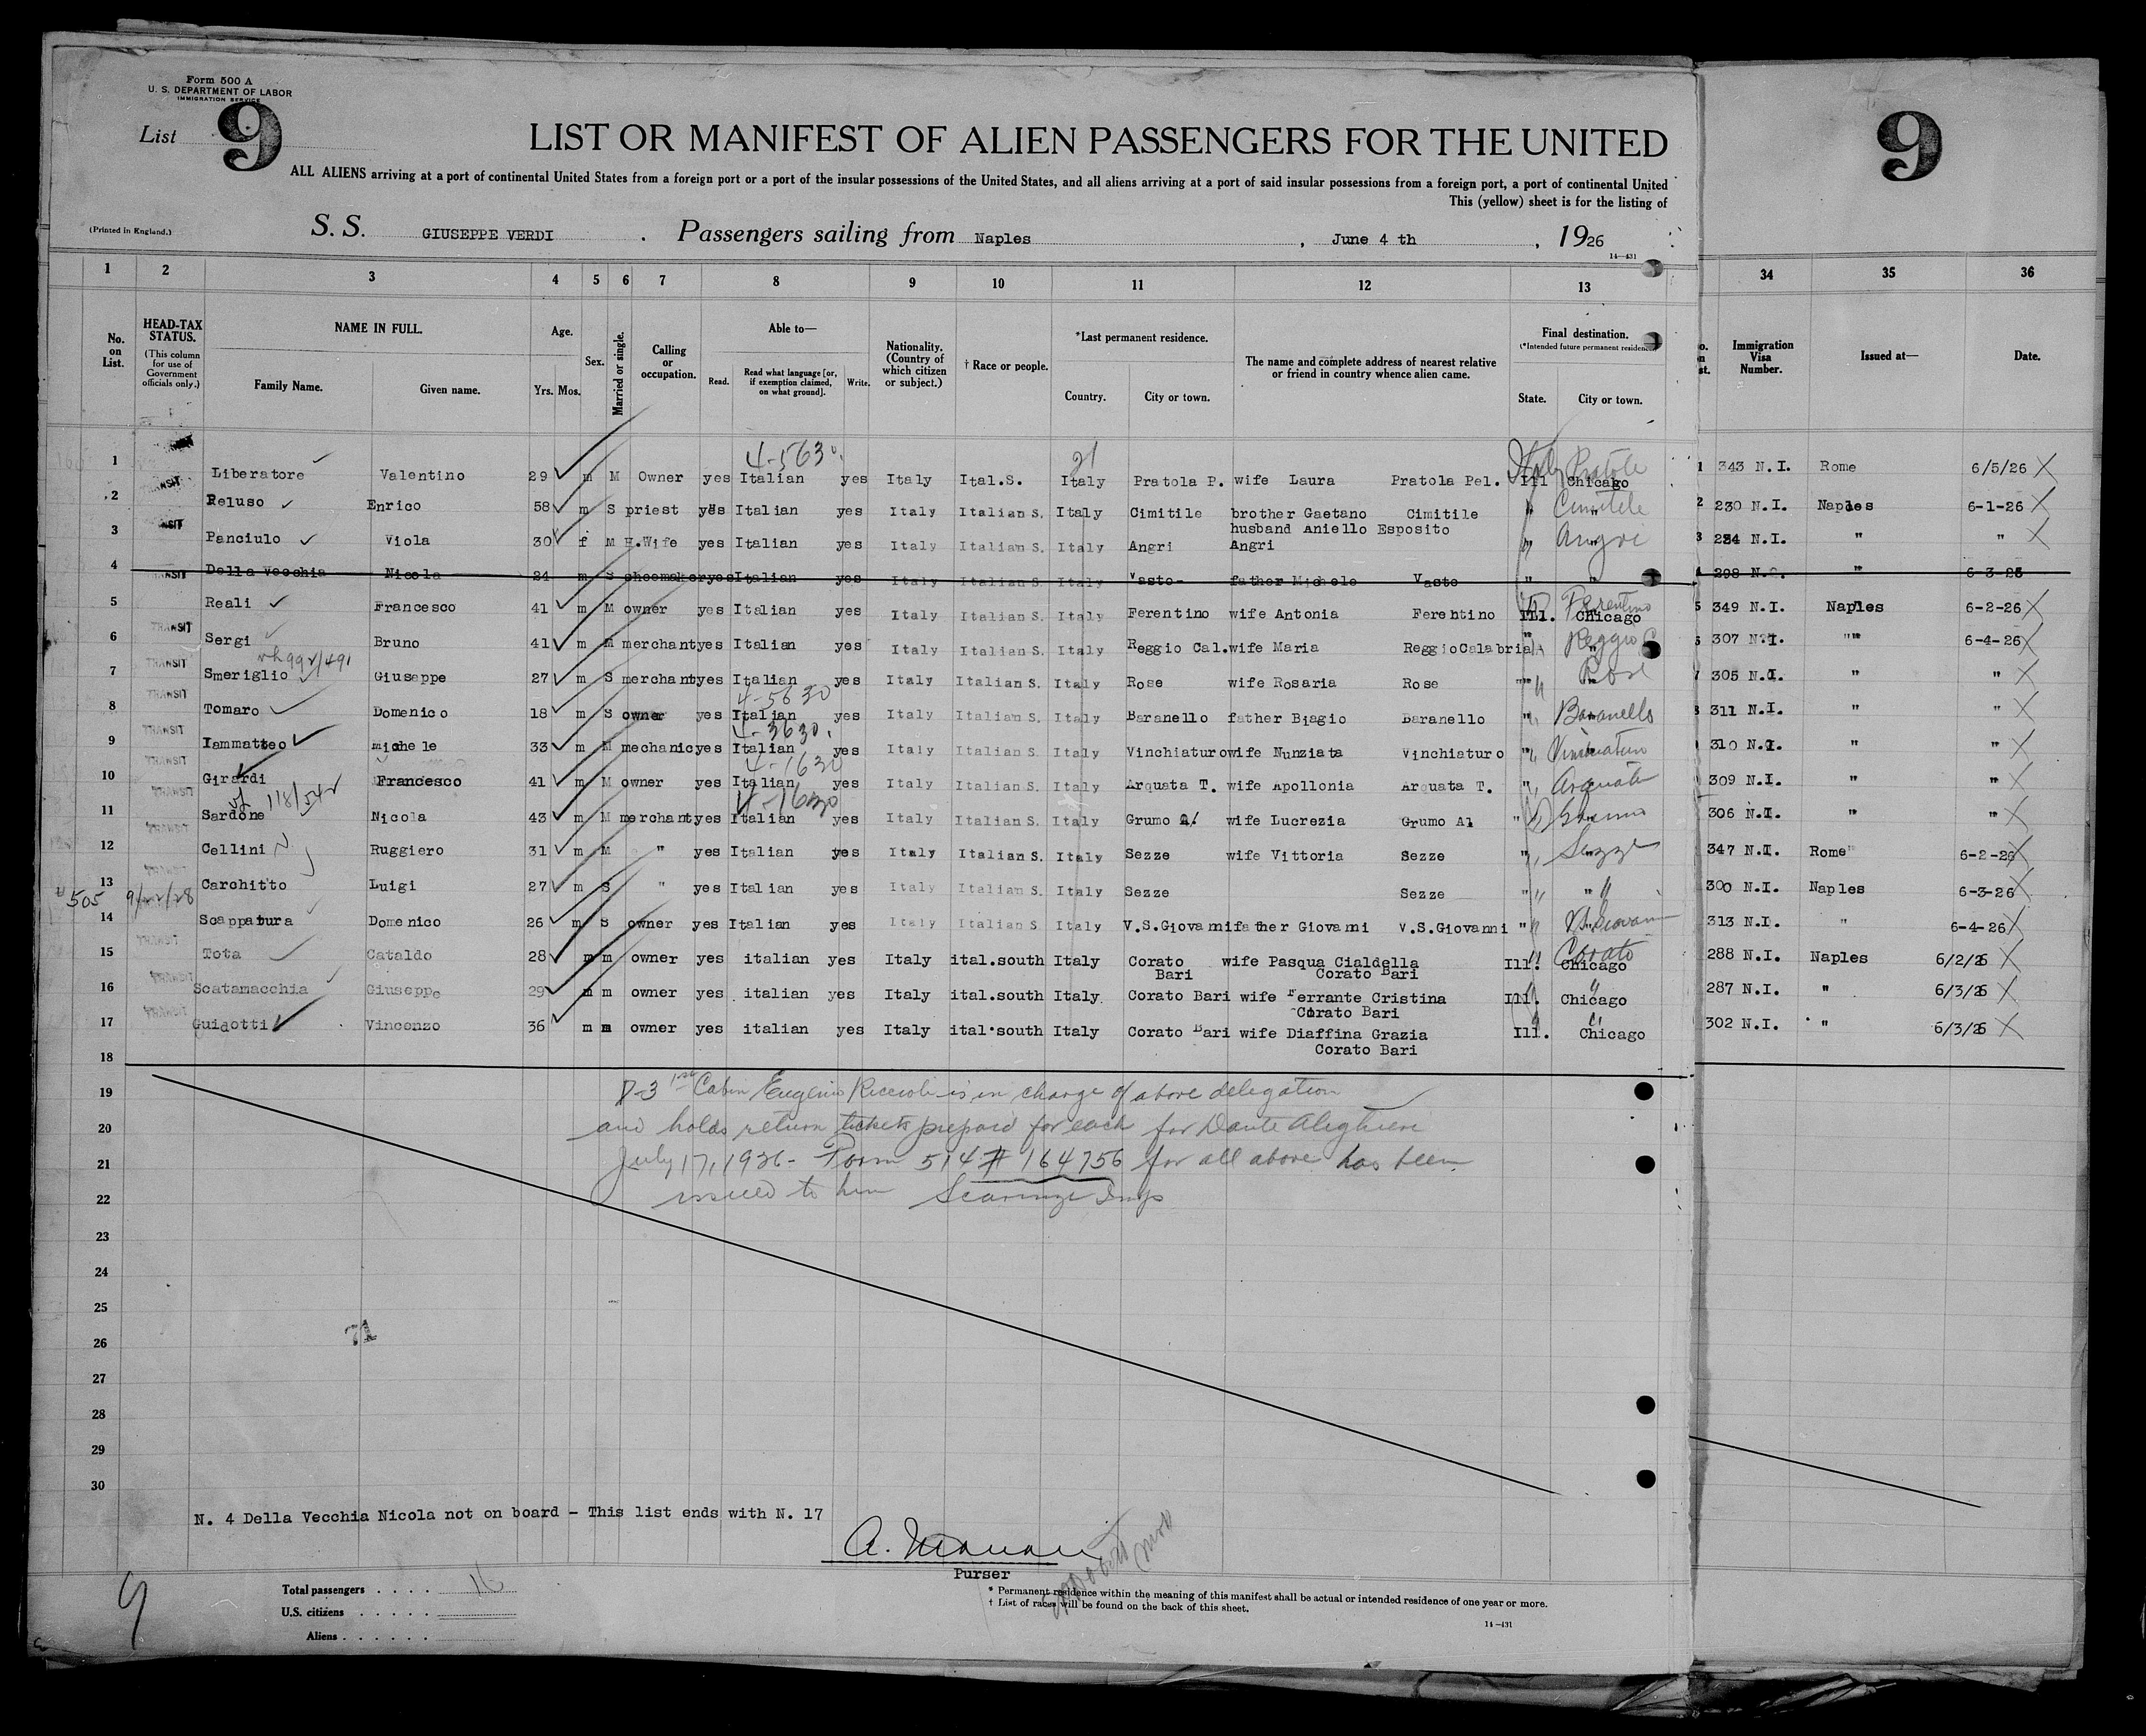 Form 500 A
U. S. DEPARTMENT OF LABOR
IMMIGRATION SERVICE
List 9
9
LIST OR MANIFEST OF ALIEN PASSENGERS FOR THE UNITED
ALL ALIENS arriving at a port of continental United States from a foreign port or a port of the insular possessions of the United States, and all aliens arriving at a port of said insular possessions from a foreign port, a port of continental United
This (yellow) sheet is for the listing of
(Printed in England.) S. S. GIUSEPPE VERDI . Passengers sailing from Naples , June 4 th , 1926
14—431
1 2 3 4 5 6 7 8 9 10 11 12 13 34 35 36
No. on List. HEAD-TAX STATUS. (This column for use of Government officials only.) NAME IN FULL. Family Name. Given name. Age. Yrs. Mos. Sex. Married or single. Calling or occupation. Able to— Read. Read what language [or, if exemption claimed, on what ground]. Write. Nationality. (Country of which citizen or subject.) † Race or people. *Last permanent residence. Country. City or town. The name and complete address of nearest relative or friend in country whence alien came. Final destination. (*Intended future permanent residence.) State. City or town. Immigration Visa Number. Issued at— Date.
4-5630 21 Italy Pratola
1 Liberatore Valentino 29 m M Owner yes Italian yes Italy Ital.S. Italy Pratola P. wife Laura Pratola Pel. Ill Chicago 1 343 N.I. Rome 6/5/26
2 TRANSIT Reluso Enrico 58 m S priest yes Italian yes Italy Italian S. Italy Cimitile brother Gaetano Cimitile " " Cimitile 2 230 N.I. Naples 6-1-26
3 Panciulo Viola 30 f M H.Wife yes Italian yes Italy Italian S. Italy Angri husband Aniello Esposito Angri " Angri 3 284 N.I. " "
4 Della Vecchia Nicola 24 m S shoemaker yes Italian yes Italy Italian S. Italy Vasto father Michele Vasto " " 4 298 N.I. " 6-3-26
5 Reali Francesco 41 m M owner yes Italian yes Italy Italian S. Italy Ferentino wife Antonia Ferentino Ill. Chicago Ferentino 5 349 N.I. Naples 6-2-26
6 TRANSIT Sergi Bruno 41 m M merchant yes Italian yes Italy Italian S. Italy Reggio Cal. wife Maria Reggio Calabria " " Reggio C 307 N.I. "" 6-4-26
992/491
7 TRANSIT Smeriglio Giuseppe 27 m S merchant yes Italian yes Italy Italian S. Italy Rose wife Rosaria Rose " " Rose 305 N.I. " "
4-5630
8 TRANSIT Tomaro Domenico 18 m S owner yes Italian yes Italy Italian S. Italy Baranello father Biagio Baranello " Baranello 311 N.I. " "
4-3630
9 TRANSIT Iammatteo michele 33 m M mechanic yes Italian yes Italy Italian S. Italy Vinchiaturo wife Nunziata Vinchiaturo " Vinchiaturo 310 N.I. " "
4-1630
10 TRANSIT Girardi Francesco 41 m M owner yes Italian yes Italy Italian S. Italy Arquata T. wife Apollonia Arquata T. " Arquata 309 N.I. " "
118/542 4-1630
11 TRANSIT Sardone Nicola 43 m M merchant yes Italian yes Italy Italian S. Italy Grumo A. wife Lucrezia Grumo Al " Grumo 306 N.I. " "
12 TRANSIT Cellini Ruggiero 31 m M " yes Italian yes Italy Italian S. Italy Sezze wife Vittoria Sezze " Sezze 347 N.I. Rome 6-2-26
13 Carchitto Luigi 27 m S " yes Italian yes Italy Italian S. Italy Sezze Sezze " " 300 N.I. Naples 6-3-26
505 9/22/28
14 Scappatura Domenico 26 m S owner yes Italian yes Italy Italian S Italy V.S.Giovanni father Giovanni V.S.Giovanni " V.S.Giovanni 313 N.I. " 6-4-26
15 TRANSIT Tota Cataldo 28 m m owner yes italian yes Italy ital.south Italy Corato Bari wife Pasqua Cialdella Corato Bari Ill. Chicago Corato 288 N.I. Naples 6/2/26
16 TRANSIT Scatamacchia Giuseppe 29 m m owner yes italian yes Italy ital.south Italy Corato Bari wife Ferrante Cristina Corato Bari Ill. Chicago " 287 N.I. " 6/3/26
17 TRANSIT Guidotti Vincenzo 36 m m owner yes italian yes Italy ital.south Italy Corato Bari wife Diaffina Grazia Corato Bari Ill. Chicago " 302 N.I. " 6/3/26
18
19 P-3 1st Cabin Eugenio Riccioli is in charge of above delegation
20 and holds return tickets prepaid for each for Dante Alighieri
21 July 17, 1926 - Form 514 # 164756 for all above has been
22 issued to him Insp
23
24
25
26 71
27
28
29
30
N. 4 Della Vecchia Nicola not on board - This list ends with N. 17
Purser
9
Total passengers . . . . 16
U.S. citizens . . . . .
Aliens . . . . . .
* Permanent residence within the meaning of this manifest shall be actual or intended residence of one year or more.
† List of races will be found on the back of this sheet.
14—431